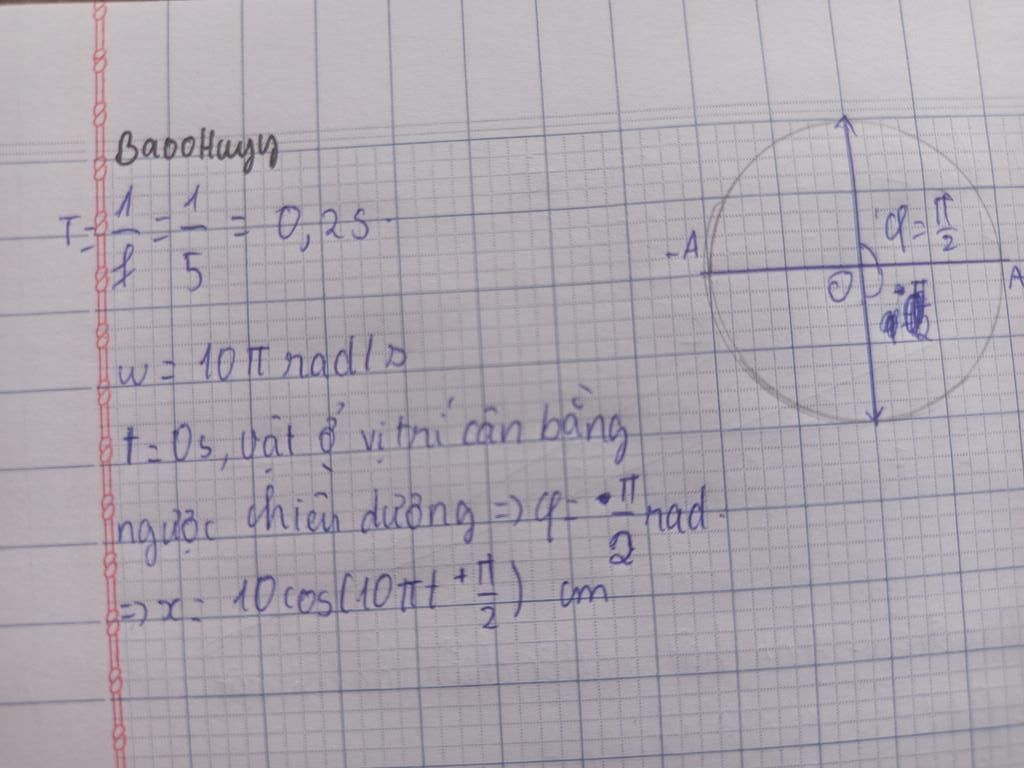 BaooHuyy
T = 1/f = 1/5 = 0,2s
w = 10π rad/s
t = 0s, vật ở vị trí cân bằng
ngược chiều dương => φ = π/2 rad.
=> x = 10cos(10πt + π/2) cm
φ = π/2
-A
O
A